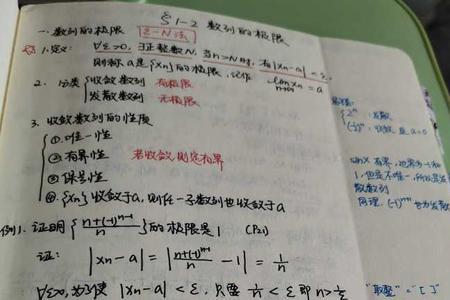 §1-2 数列的极限
一. 数列的极限 ε-N法
1.定义: ∀ε>0, ∃正整数N, 当n>N时, 有|xn-a|<ε,
则称a是{xn}的极限, 记作 lim xn = a
n→∞
2. 分类 { 收敛数列 有极限
发散数列 无极限
3. 收敛数列的性质
①.唯一性
②.有界性 若收敛则定有界
③.保号性
④.{xn}收敛于a, 则任一子数列也收敛于a
例1. 证明{(n+(-1)^(n-1))/n}的极限是1 (P21)
证: |xn-a| = |(n+(-1)^(n-1))/n - 1| = 1/n
∀ε>0, 为了使 |xn-a|<ε, 只要 1/n<ε 即 n>1/ε
2^n 发散
收敛 且 a=0
1, 但是不唯一, 所以是发
散数列
同理, (-1)^(n+1) 也为发散
"取整"="[ ]"